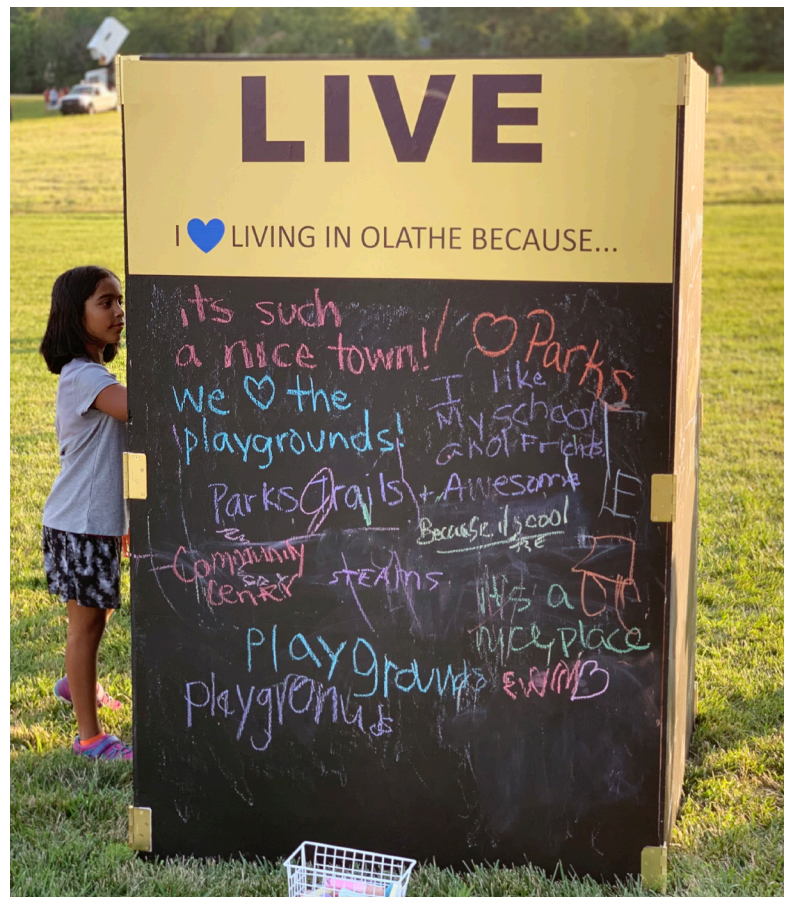 LIVE
I ♥ LIVING IN OLATHE BECAUSE...
its such
a nice town!
♡ Parks
we ♡ the
playgrounds!
I like
My school
and Friends
Parks Trails + Awesome
Because it's cool
Community
Center
STEAMS
it's a
nice place
playgrounds
playgronuds
E